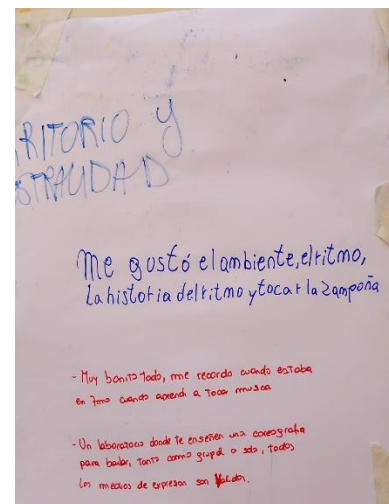 RRITORIO Y
STRALIDAD
Me gustó el ambiente, el ritmo,
La historia del ritmo y tocar la zampoña
- Muy bonito todo, me recordo cuando estaba
en 7mo cuando aprendi a tocar musica
- Un laboratorio donde te enseñen una coreografia
para bailar, tanto como grupal o solo, todos
los medios de expresion son validos.